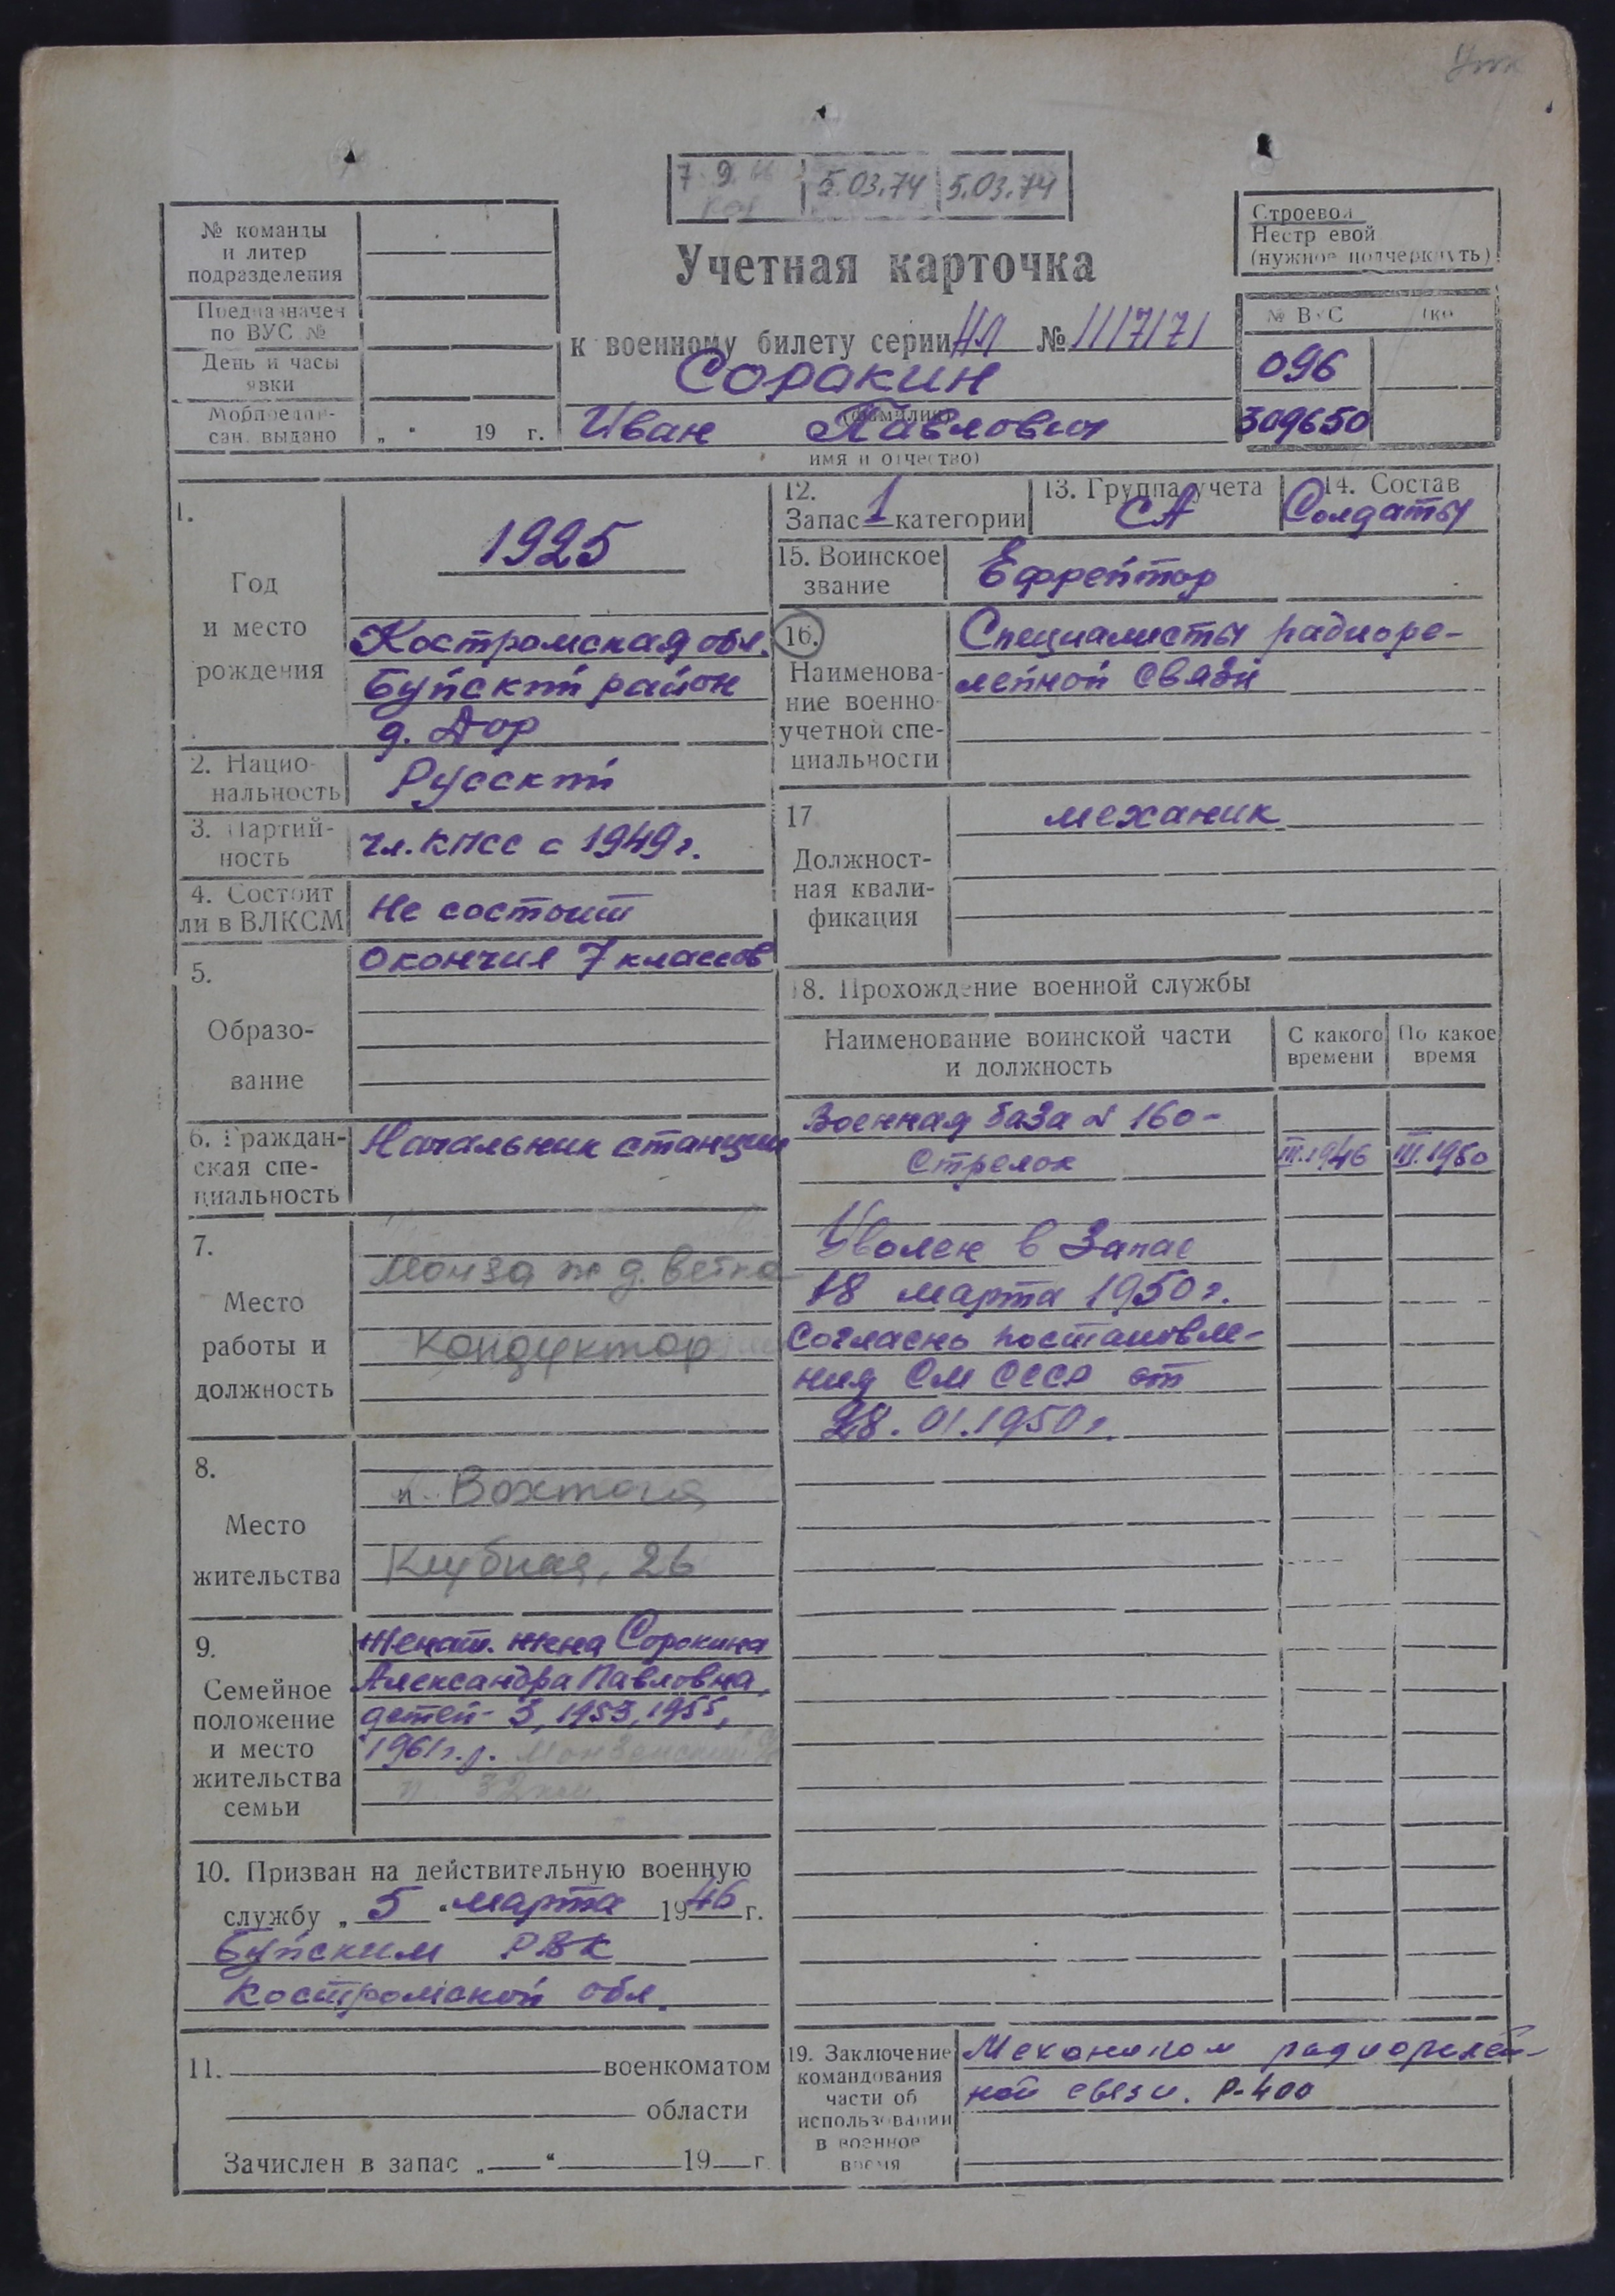 7 9. 66 5.03.74 5.03.74
№ команды
и литер
подразделения
Предназначен
по ВУС №
День и часы
явки
Мобпредпи-
сан. выдано „ “ 19 г.
Учетная карточка
к военному билету серии НЛ № 1117171
Соракин
(фамилия)
Иван Павлович
имя и отчество)
Строевой
Нестр евой
(нужное подчеркнуть)
№ ВУС
096
309650
1.
Год
и место
рождения
1925
Костромская обл.
Буйский район
д. Дор
2. Нацио-
нальность
Русский
3. Партий-
ность
чл. КПСС с 1949 г.
4. Состоит
ли в ВЛКСМ
Не состоит
5.
Образо-
вание
Окончил 7 классов
6. Граждан-
ская спе-
циальность
Начальник станции
7.
Место
работы и
должность
Монза ж д. ветка
Кондуктор
8.
Место
жительства
п. Вохтога
Клубная, 26
9.
Семейное
положение
и место
жительства
семьи
Женат. жена Сорокина
Александра Павловна,
детей - 3, 1953, 1955,
1961 г.р. Монзенский
п. 32 км
10. Призван на действительную военную
службу „ 5 “ марта 1946 г.
Буйским РВК
Костромской обл.
11. военкоматом
области
Зачислен в запас „ “ 19 г.
12.
Запас 1 категории
13. Группа учета
СА
14. Состав
Солдаты
15. Воинское
звание
Ефрейтор
16.
Наименова-
ние военно-
учетной спе-
циальности
Специалисты радиоре-
лейной связи
17
Должност-
ная квали-
фикация
механик
18. Прохождение военной службы
Наименование воинской части
и должность
С какого
времени
По какое
время
Военная база № 160 -
Стрелок III.1946 III.1950
Уволен в запас
18 марта 1950 г.
Согласно постановле-
ния СМ СССР от
28.01.1950 г.
19. Заключение
командования
части об
использовании
в военное
время
Механиком радиорелей-
ной связи. Р-400